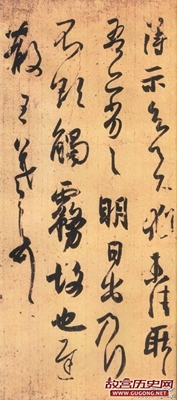 得示知足下猶未佳耿
吾亦劣劣明日出乃行
不欲觸霧故也遲
散王羲之頓首
故宫历史网
www.gugong.net